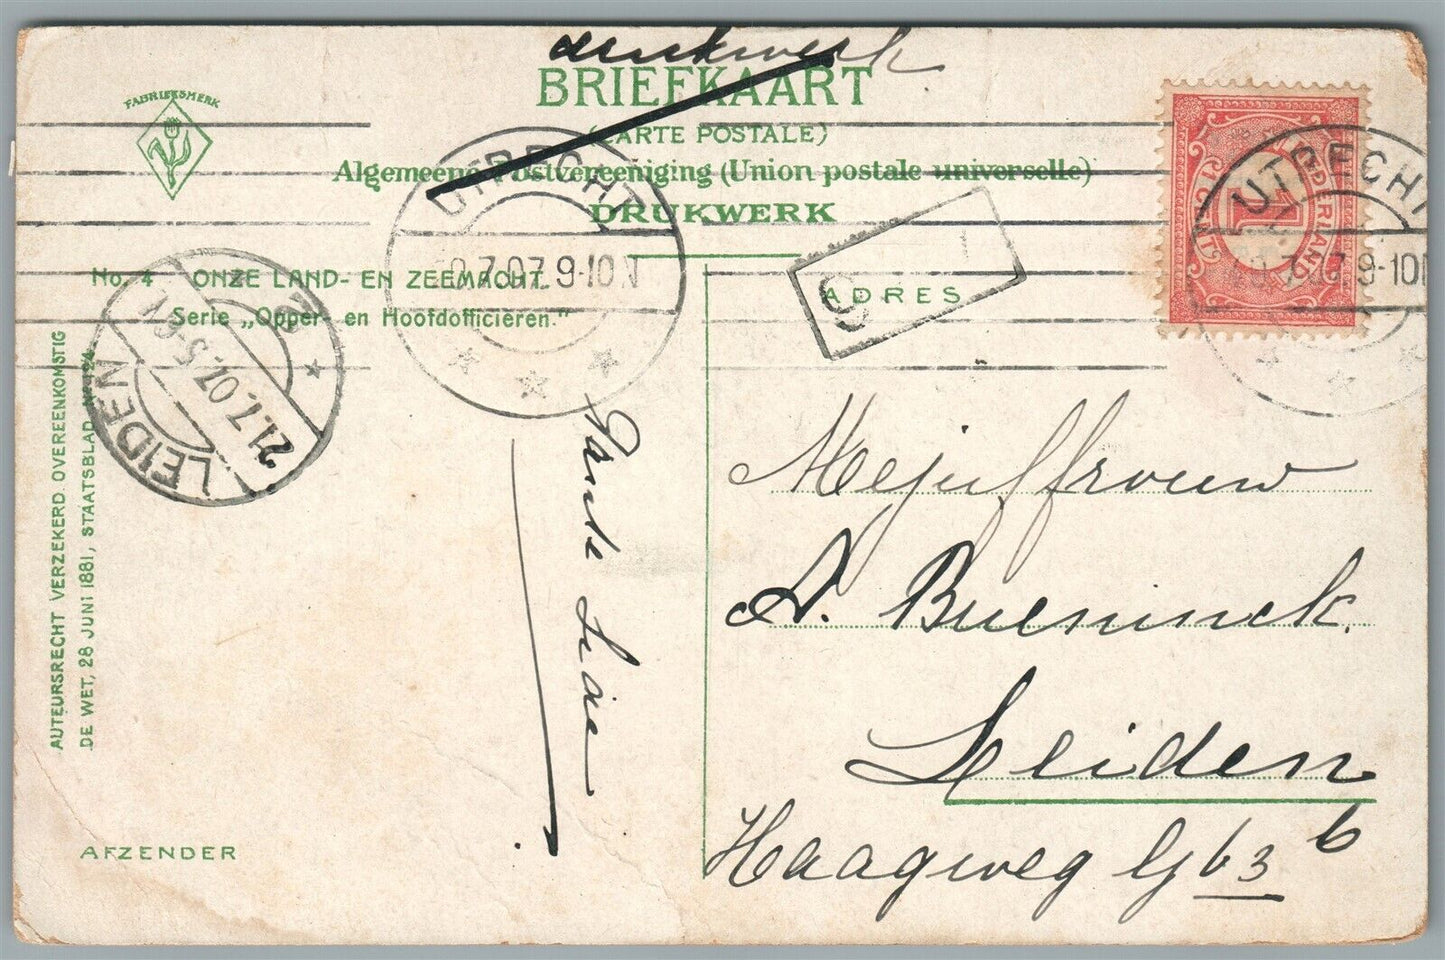 drukwerk
BRIEFKAART
(CARTE POSTALE)
Algemeene Postvereeniging (Union postale universelle)
DRUKWERK
FABRIEKSMERK
No. 4 ONZE LAND- EN ZEEMACHT.
Serie „Opper- en Hoofdofficieren."
UTRECHT
0.7.07.9-10N
LEIDEN
21.7.07.5-6V
2
9
ADRES
NEDERLAND
1
CENT
UTRECHT
20.7.07.9-10N
AUTEURSRECHT VERZEKERD OVEREENKOMSTIG
DE WET, 28 JUNI 1881, STAATSBLAD No. 124.
Tante
Mejuffrouw
A. Bueninck.
Leiden
Haagweg 63 b
AFZENDER